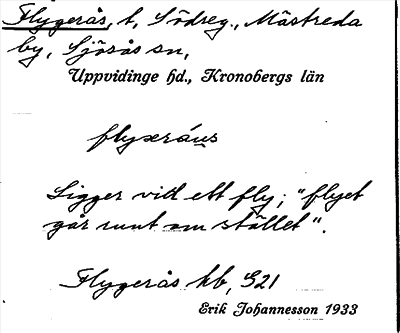 Flygerås, t, Södreg., Mästreda
by, Sjösås sn,
Uppvidinge hd., Kronobergs län
flyxeráus
Ligger vid ett fly; "flyet
går runt om stället".
Flygerås kb, G21
Erik Johannesson 1933